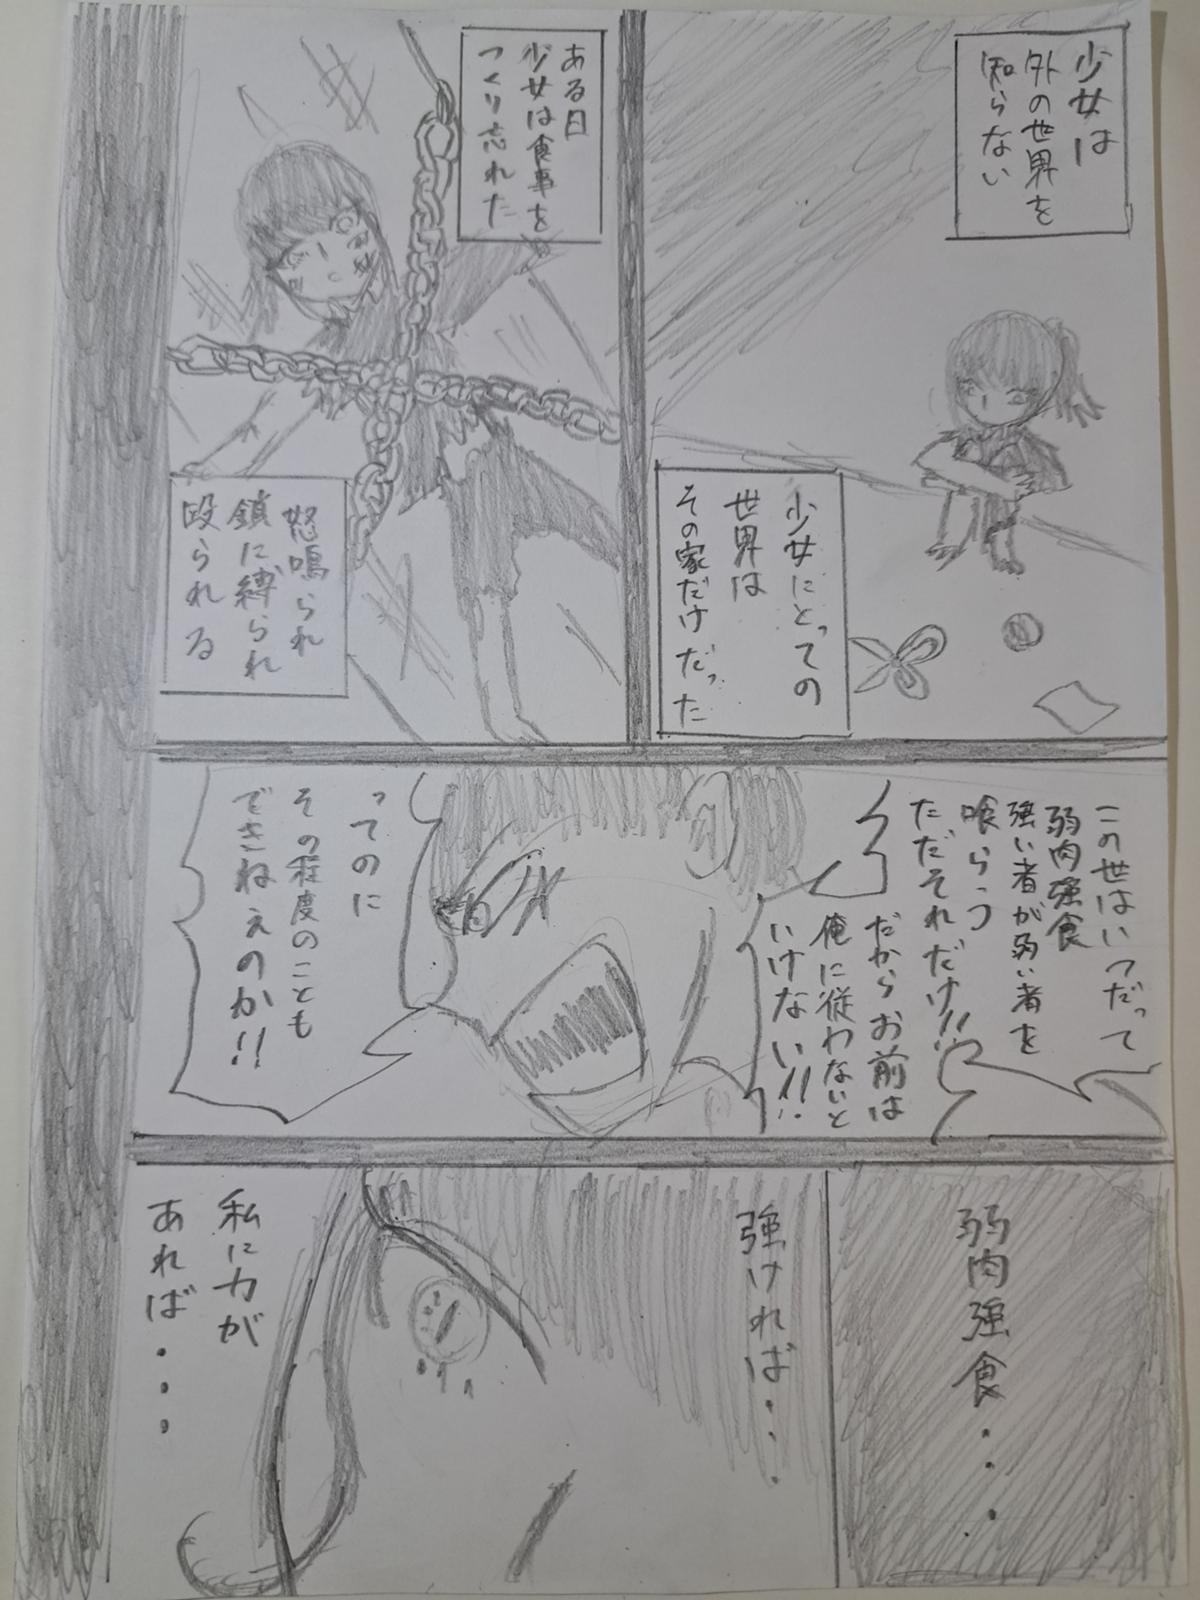 少女は
外の世界を
知らない
少女にとっての
世界は
その家だけだった
ある日
少女は食事を
つくり忘れた
怒鳴られ
鎖に縛られ
殴られる
この世はいつだって
弱肉強食
強い者が弱い者を
喰らう
ただそれだけ!!
だからお前は
俺に従わないと
いけない!!
ってのに
その程度のことも
できねぇのか!!
弱肉強食・・・
強ければ・・・
私に力が
あれば・・・